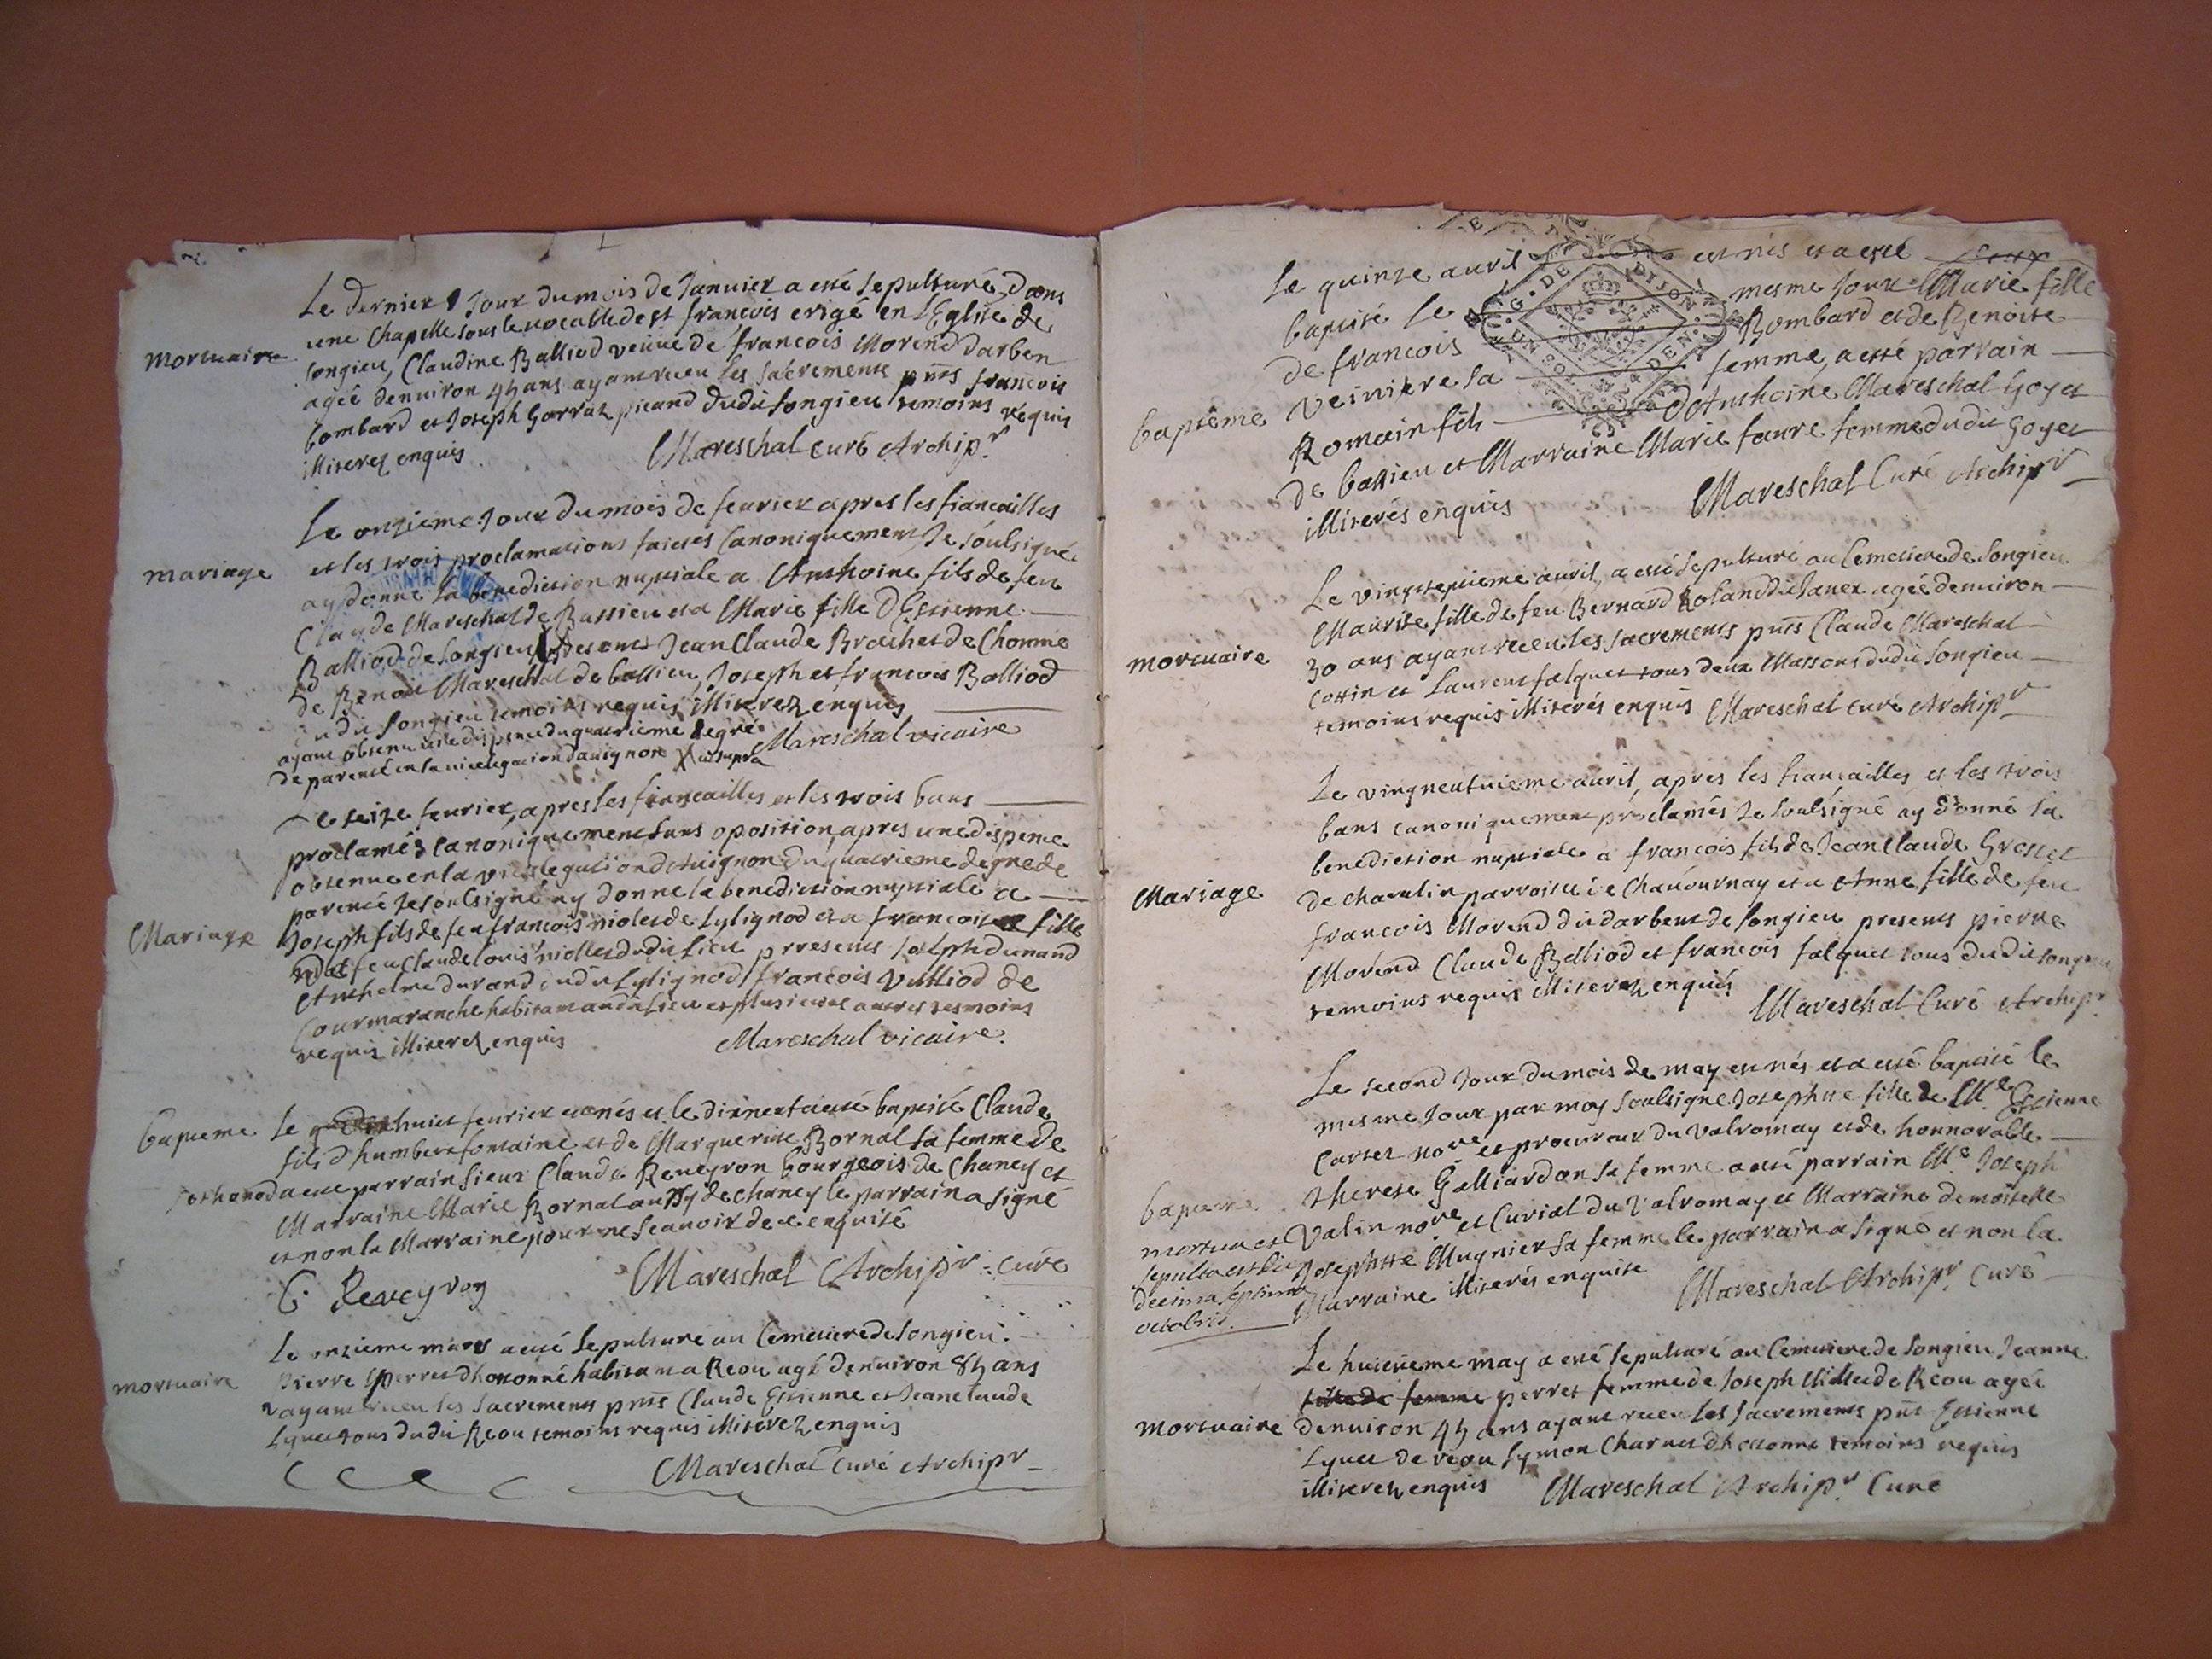 Le dernier Jour du mois de Januier a esté sepulturé dans
une Chapelle sous le uocable de st francois erigé en l'Eglise de
mortuaire
songieu, Claudine Balliod veuue de francois Morend darben
agée denuiron 45 ans ayant receu les sacrements pnts francois
bombard et Joseph Garraz picand dudit songieu temoins requis
illiterez enquis
Mareschal curé Archipr
Le onzieme Jour du mois de feurier apres les fiancailles
et les trois proclamations faictes Canoniquement Je soulsigné
mariage
ay donné la benediction nuptiale a Anthoine fils de feu
Claude Mareschal de Bassieu et a Marie fille d'Estienne
Balliod de songieu presents Jean Claude Brochet de Chomme
de Benoit Mareschal de bassieu, Joseph et francois Balliod
dudit songieu temoins requis illiterez enquis
ayant obtenu une dispense du quatrieme degré
Mareschal vicaire
de parenté en la uicelegation dauignon ut supra
Le seize feurier, apres les fiancailles et les trois bans
proclamés canoniquement sans oposition, apres une dispense
obtenue en la vicelegation d'Auignon du quatrieme degre de
parenté Je soulsigné ay donné la benediction nuptiale a
Mariage
Joseph fils de feu francois niolet de Lylignod et a francoise fille
de feu Claude louis niollet dudit lieu presents Joseph dunand
Anthelme durand dudit Lylignod francois Vulliod de
Courmaranche habitant audit Lieu et plusieurs autres tesmoins
requis illiterez enquis
Mareschal vicaire.
bapteme
Le dixhuict feurier est nés et le dixneuf a esté baptisé Claude
fils d'humbert fontaine et de Marguerite Bornat sa femme de
sothonod a esté parrain sieur Claude Reueyron bourgeois de Chaney et
Marraine Marie Bornat aussy de chaney le parrain a signé
et non la Marraine pour ne scauoir de ce enquise
C. Reveyron
Mareschal Archipr curé
Le onzieme mars a esté sepulturé au Cemetiere de songieu
mortuaire
Pierre perret d'hotonne habitant a Reou agé denuiron 85 ans
ayant receu les sacrements pnts Claude Estienne et Jeanclaude
Lyuet tous dudit Reou temoins requis illiterez enquis
Mareschal Curé Archipr
Le quinze auril est nés et a esté
baptisé le mesme Jour Marie fille
de francois Bombard et de Benoite
bapteme
veiniere sa femme, a esté parrain
Romain fils d'Anthoine Mareschal Goyet
de bassieu et Marraine Marie faure femme dudit Goyet
illiterés enquis
Mareschal Curé Archipr
G. DE DIJON
UN SOL 4 DEN.
Le vingtseptieme auril, a esté sepulturé au Cemetiere de songieu
Maurise fille de feu Bernard Roland dit Janex agée denuiron
mortuaire
30 ans ayant receu les sacrements pnts Claude Mareschal
Cottin et Laurent falquet tous deux Massons dudit songieu
temoins requis illiterés enquis Mareschal curé Archipr
Le vingneufuieme auril, apres les fiancailles et les trois
bans canoniquement proclamés Je soulsigné ay donné la
benediction nuptiale a francois fils de Jean Claude Grosset
Mariage
de chaualin parroisse de Chauournay et a Anne fille de feu
francois Morend dit darbent de songieu presents pierre
Morend Claude Balliod et francois falquet tous dudit songieu
temoins requis illiterez enquis
Mareschal Curé Archipr
Le second Jour du mois de may est nés et a esté baptisé le
mesme Jour par moy soulsigné Josephte fille de Me Estienne
Carrez nore et procureur du valromay et de honnorable
Therese Galliardon sa femme a esté parrain Me Joseph
bapteme
Valin nore et Curial du Valromay et Marraine demoiselle
mortua et
sepulta est die
Josephtte Mugnier sa femme le parrain a signé et non la
decima septima
Marraine illiterés enquise
octobris
Mareschal Archipr Curé
Le huictieme may a esté sepulturé au Cemetiere de songieu Jeanne
perret femme de Joseph Millet de Reou agée
mortuaire
denuiron 45 ans ayant receu les sacrements pnt Estienne
Lyuet de reou Symon Charuet d'hotonne temoins requis
illiterez enquis
Mareschal Archipr Curé